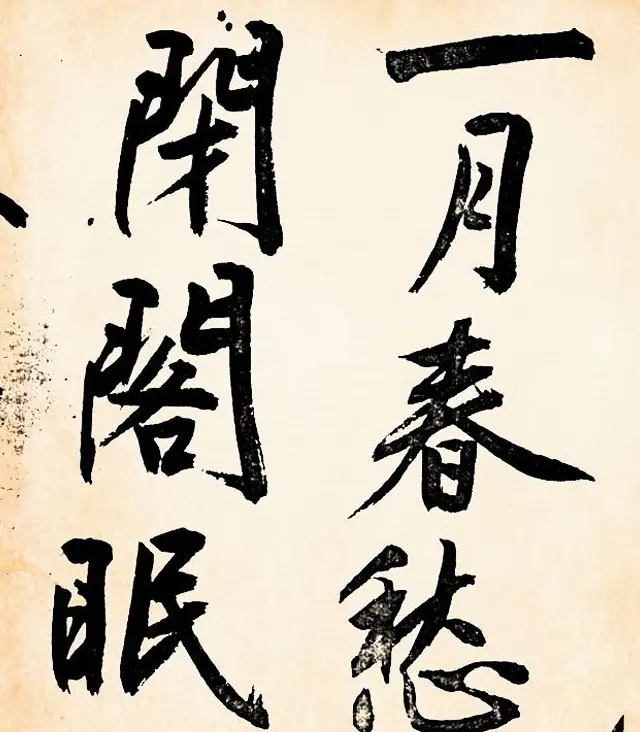 一月春愁
閉閣眠